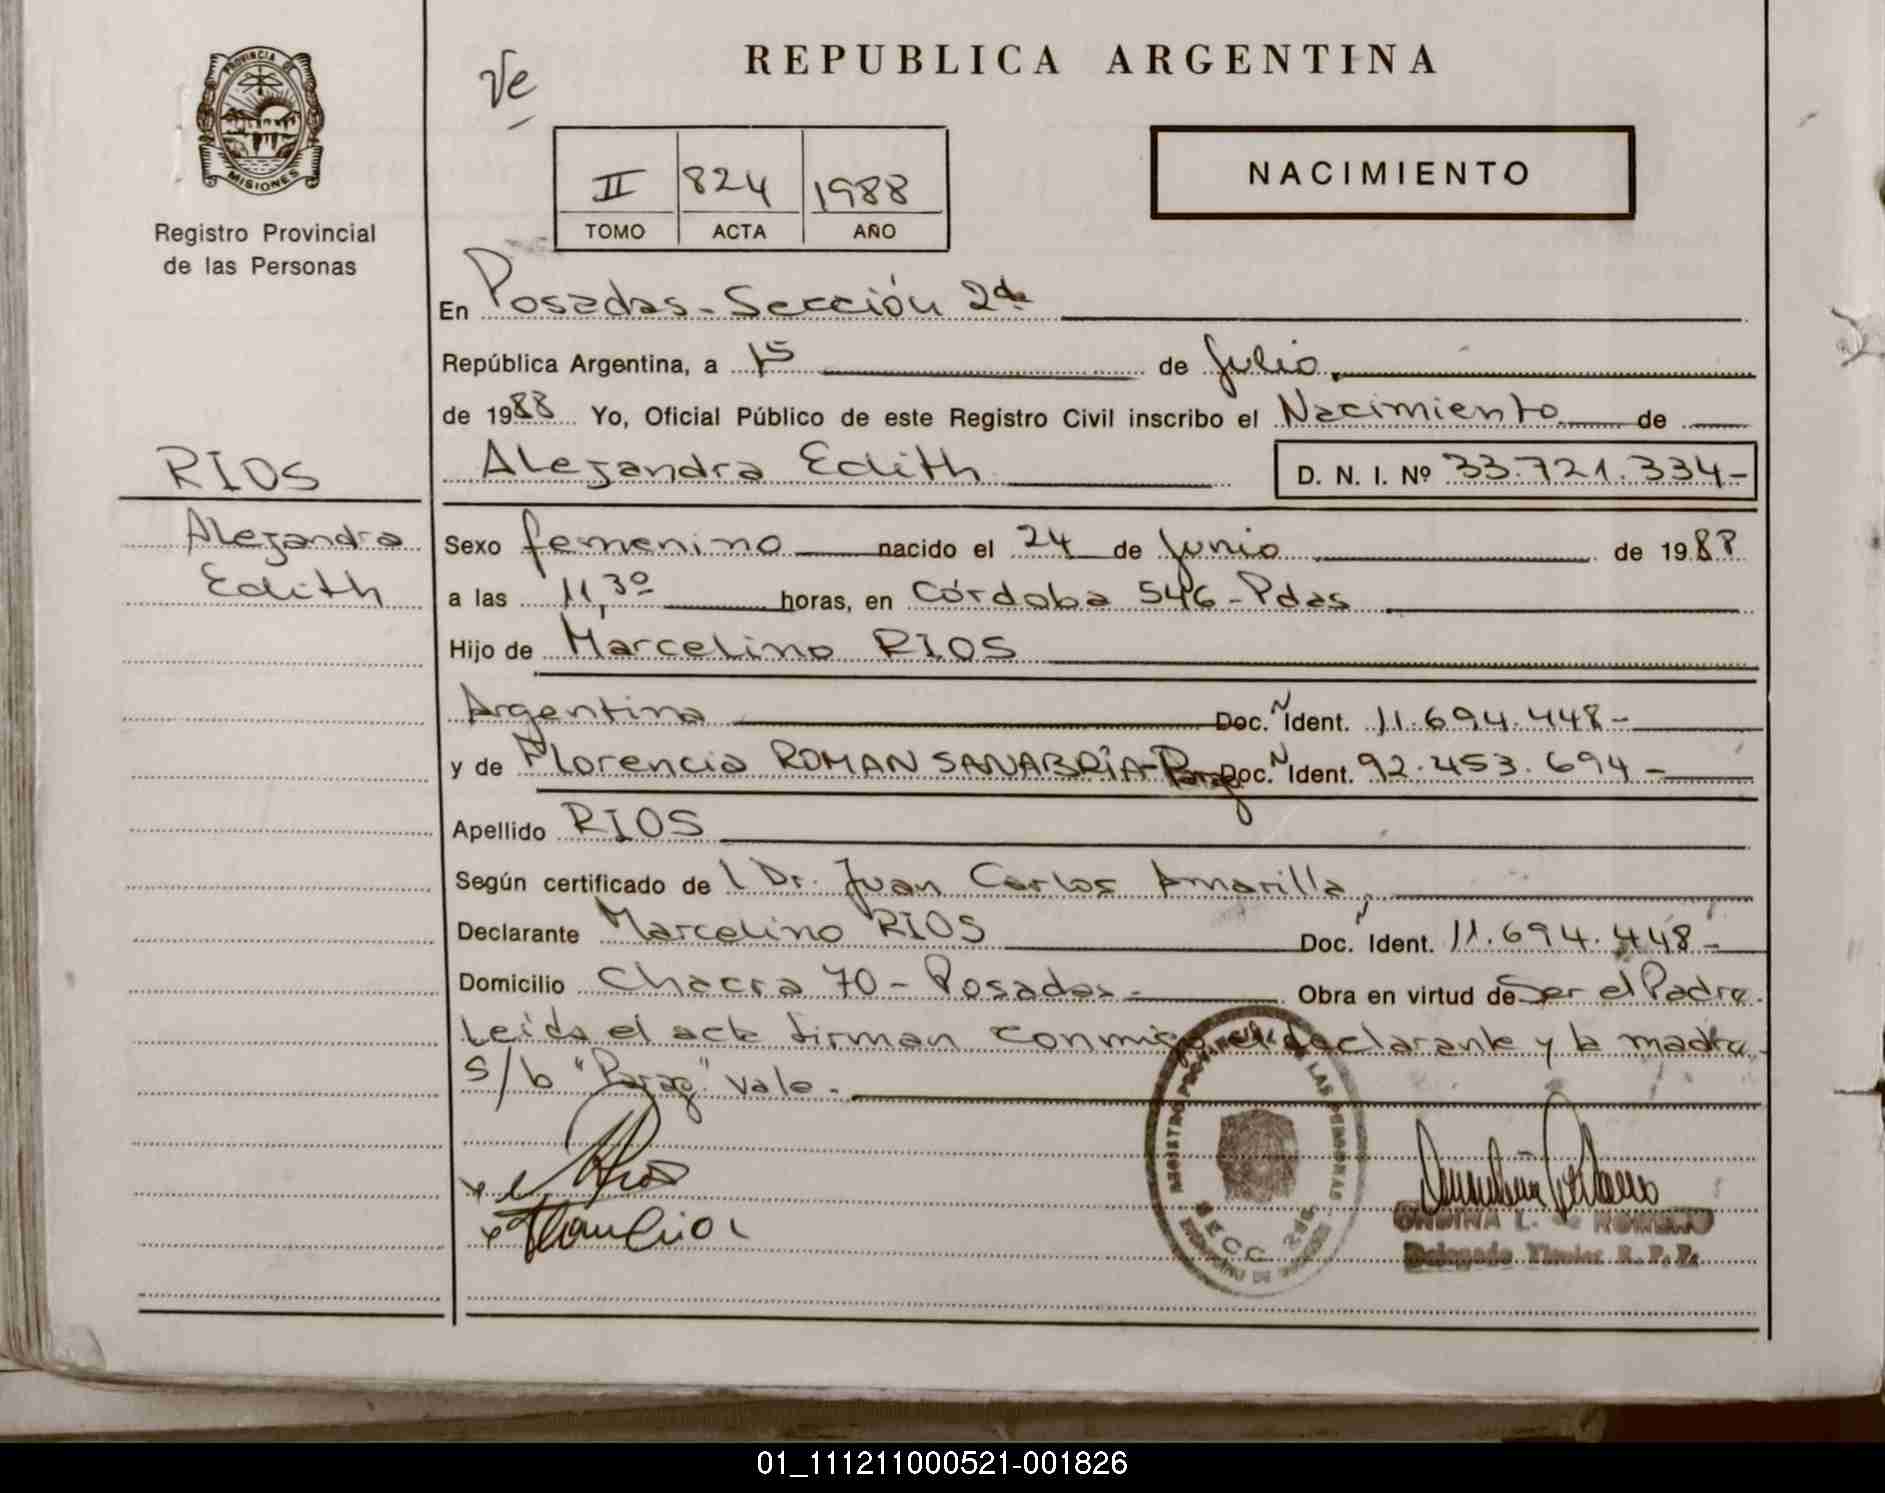 PROVINCIA DE
MISIONES
Registro Provincial
de las Personas
Ve
REPUBLICA ARGENTINA
II 824 1988
TOMO ACTA AÑO
NACIMIENTO
En Posadas - Sección 2da
República Argentina, a 15 de Julio
de 1988 Yo, Oficial Público de este Registro Civil inscribo el Nacimiento de
Alejandra Edith D. N. I. Nº 33.721.334-
RIOS
Alejandra
Edith
Sexo femenino nacido el 24 de Junio de 1988
a las 11,30 horas, en Córdoba 546 - Pdas
Hijo de Marcelino RIOS
Argentino Doc. N Ident. 11.694.448-
y de Florencia ROMAN SANABRIA - Parag Doc. N Ident. 92.453.694-
Apellido RIOS
Según certificado de l Dr. Juan Carlos Amarilla,
Declarante Marcelino RIOS Doc. N Ident. 11.694.448-
Domicilio Chacra 70 - Posadas - Obra en virtud de Ser el Padre.
Leída el acta firman conmigo el declarante y la madre.
S/b "Parag" vale.-
REGISTRO PROVINCIAL DE LAS PERSONAS
SECC. 2da
ONDINA L. de ROMERO
Delegado Titular R. P. P.
01_111211000521-001826